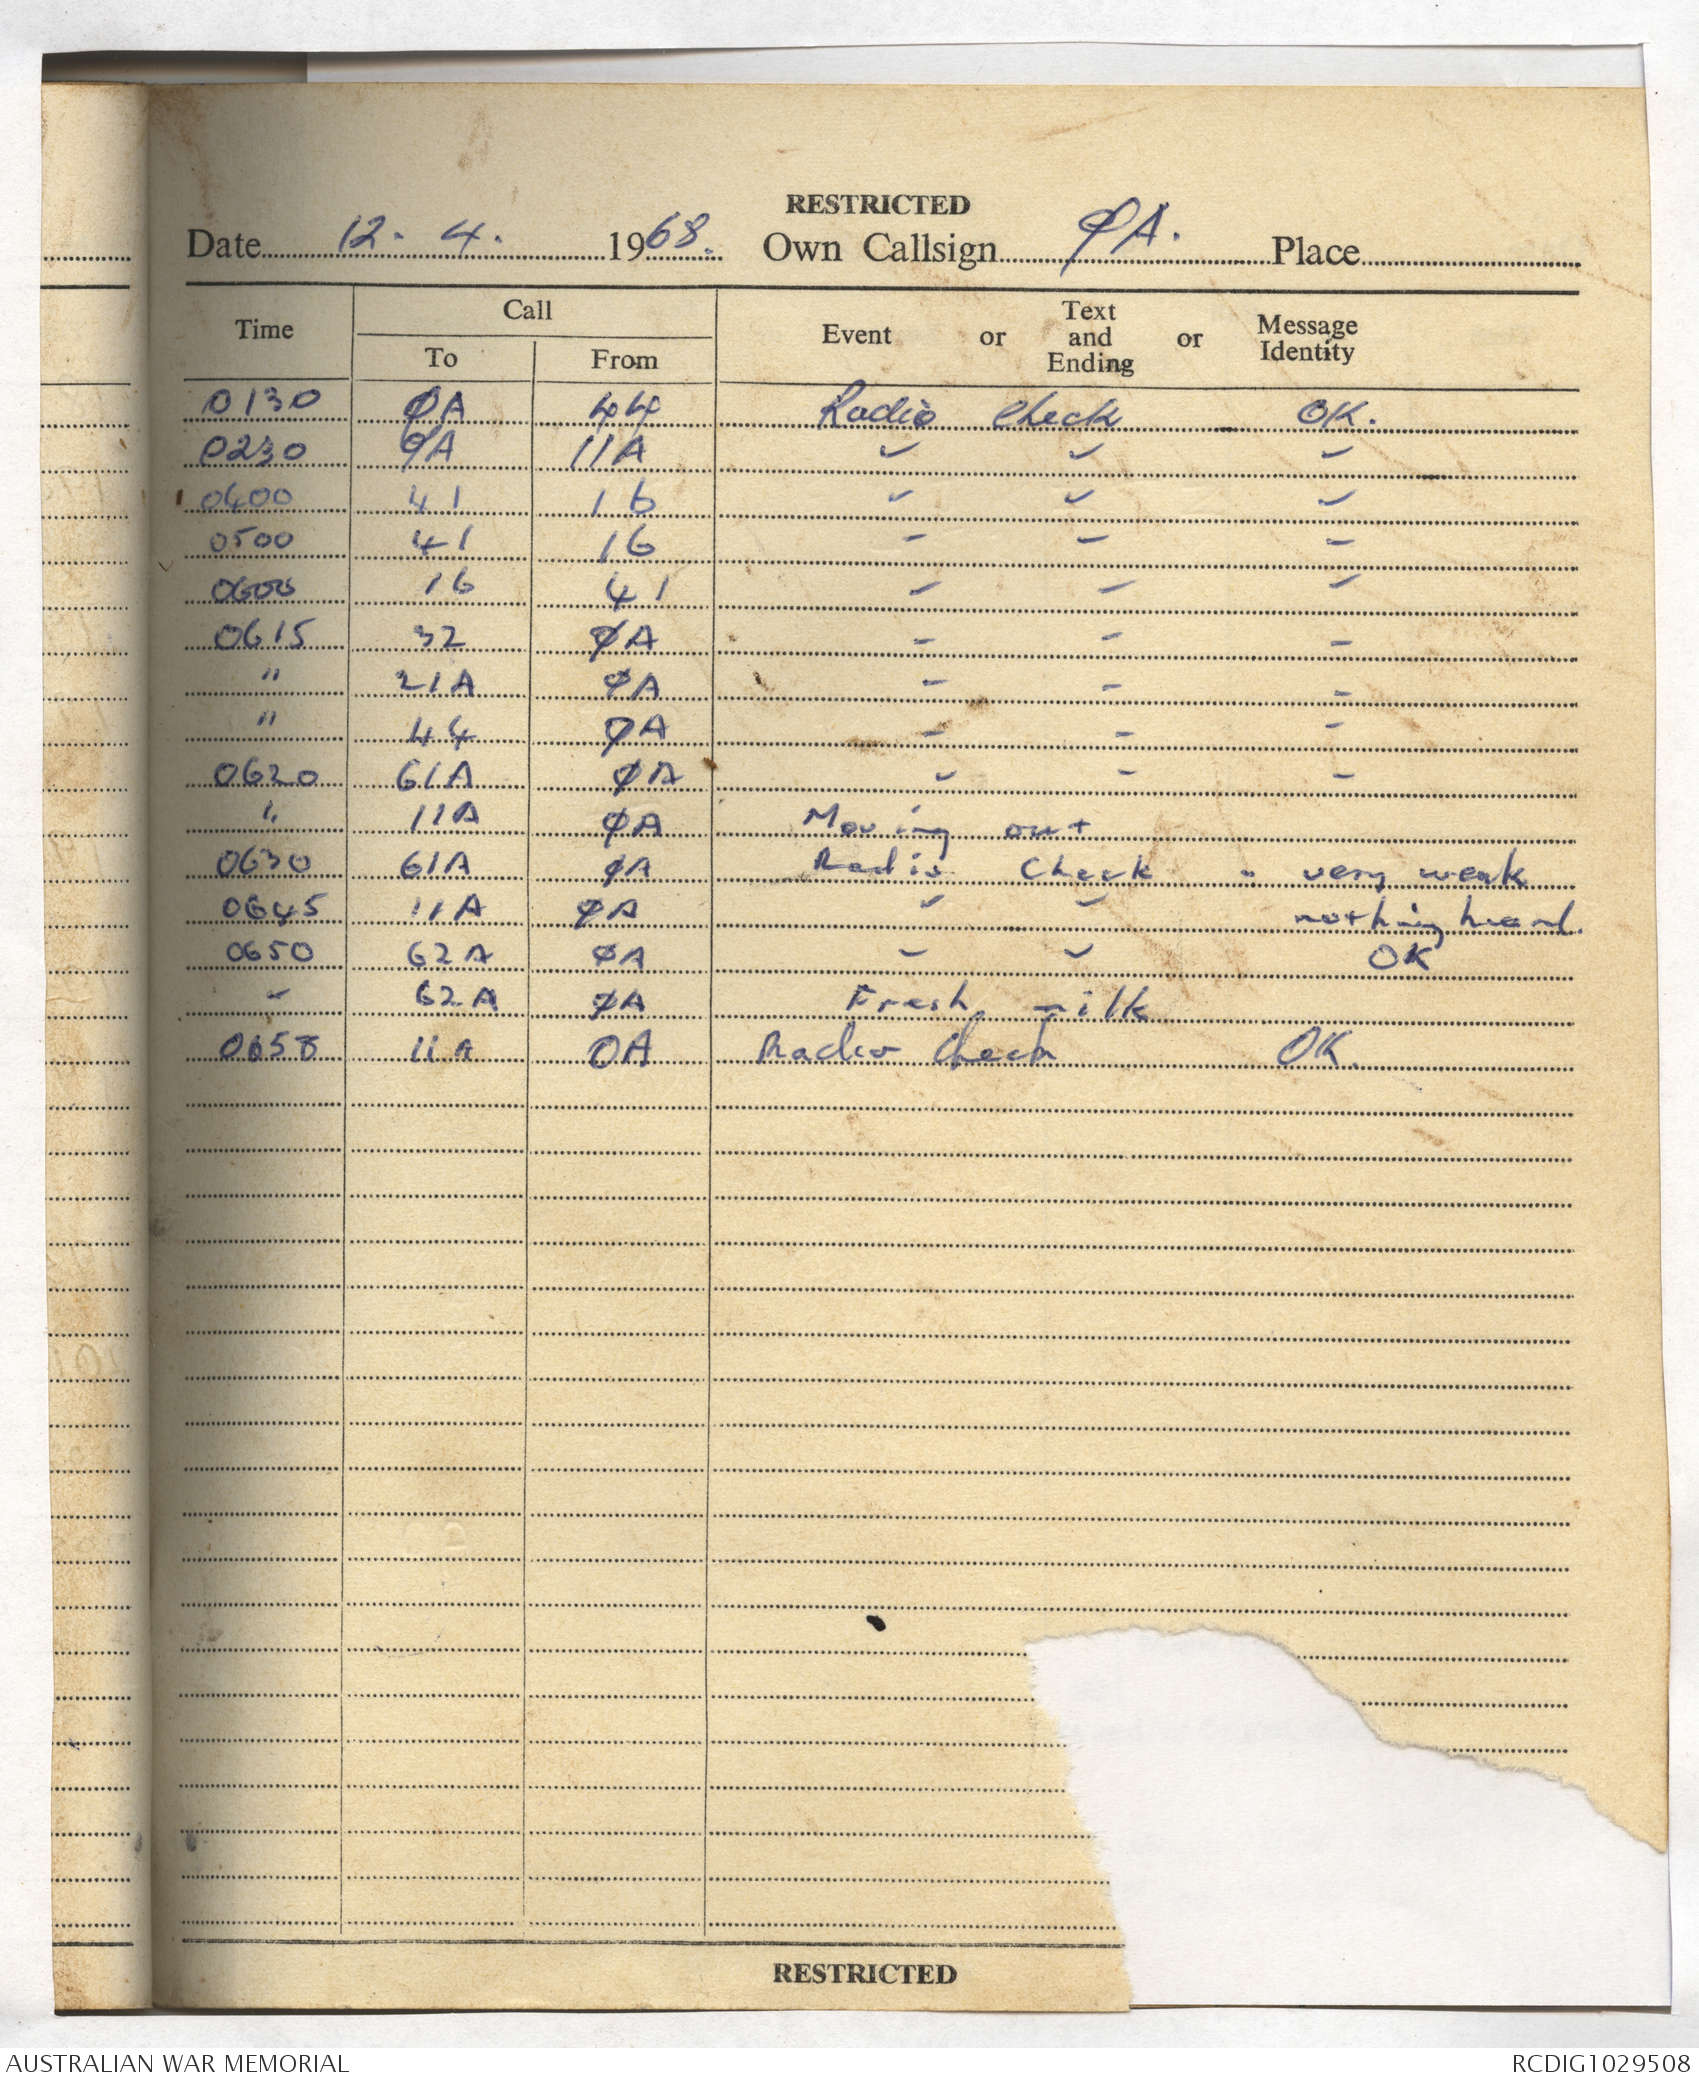 RESTRICTED
Date 12. 4. 1968. Own Callsign ØA. Place
Time Call Event or Text and Ending or Message Identity
To From
0130 ØA 44 Radio Check - OK.
0230 ØA 11A " " "
0400 41 16 " " "
0500 41 16 " " "
0600 16 41 " " "
0615 32 ØA " " "
" 21A ØA " " "
" 44 ØA " " "
0620 61A ØA " " "
" 11A ØA Moving out
0630 61A ØA Radio Check - very weak
0645 11A ØA " " nothing heard.
0650 62A ØA " " OK
" 62A ØA Fresh milk
0658 11A 0A Radio Check OK.
RESTRICTED
AUSTRALIAN WAR MEMORIAL RCDIG1029508